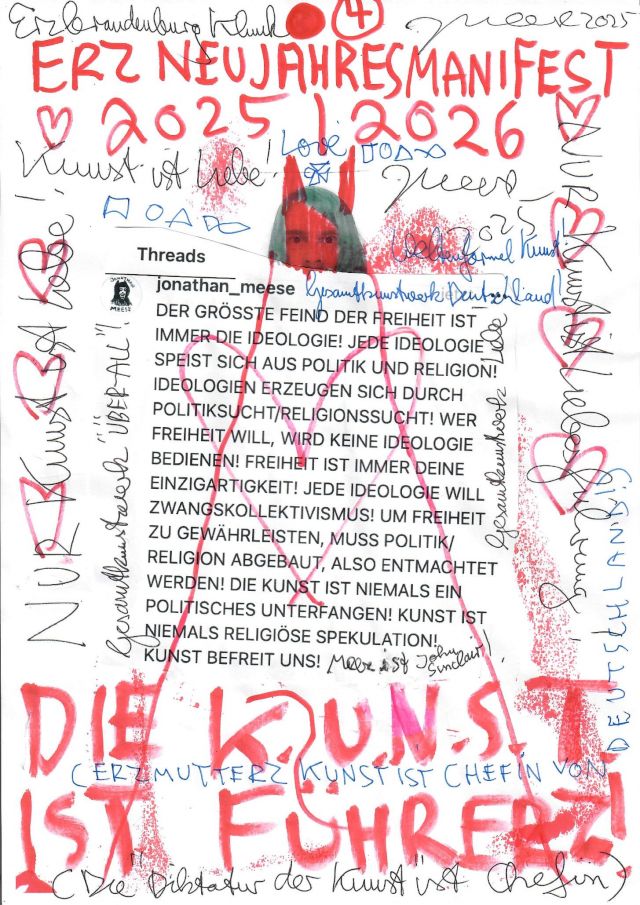 Erzbrandenburg
4
JMeese 2025
ERZ NEUJAHRESMANIFEST
2025 / 2026
Kunst ist Liebe!
Love
JMeese
2025
Weltenformel Kunst!
Threads
jonathan_meese
Gesamtkunstwerk Deutschland!
JONATHAN
MEESE
DER GRÖSSTE FEIND DER FREIHEIT IST
IMMER DIE IDEOLOGIE! JEDE IDEOLOGIE
SPEIST SICH AUS POLITIK UND RELIGION!
IDEOLOGIEN ERZEUGEN SICH DURCH
POLITIKSUCHT/RELIGIONSSUCHT! WER
FREIHEIT WILL, WIRD KEINE IDEOLOGIE
BEDIENEN! FREIHEIT IST IMMER DEINE
EINZIGARTIGKEIT! JEDE IDEOLOGIE WILL
ZWANGSKOLLEKTIVISMUS! UM FREIHEIT
ZU GEWÄHRLEISTEN, MUSS POLITIK/
RELIGION ABGEBAUT, ALSO ENTMACHTET
WERDEN! DIE KUNST IST NIEMALS EIN
POLITISCHES UNTERFANGEN! KUNST IST
NIEMALS RELIGIÖSE SPEKULATION!
KUNST BEFREIT UNS!
Meese ist John
Sinclair!
NUR Kunst ist Liebe!
Gesamtkunstwerk "ÜBER-ALL"!
Gesamtkunstwerk Liebe!
NUR Kunst ist
DIE K.U.N.S.T
CERZMUTTERZ KUNST IST CHEFIN VON
DEUTSCHLAND!
IST FÜHRERZ!
(Die "Diktatur der Kunst" ist Chefin)